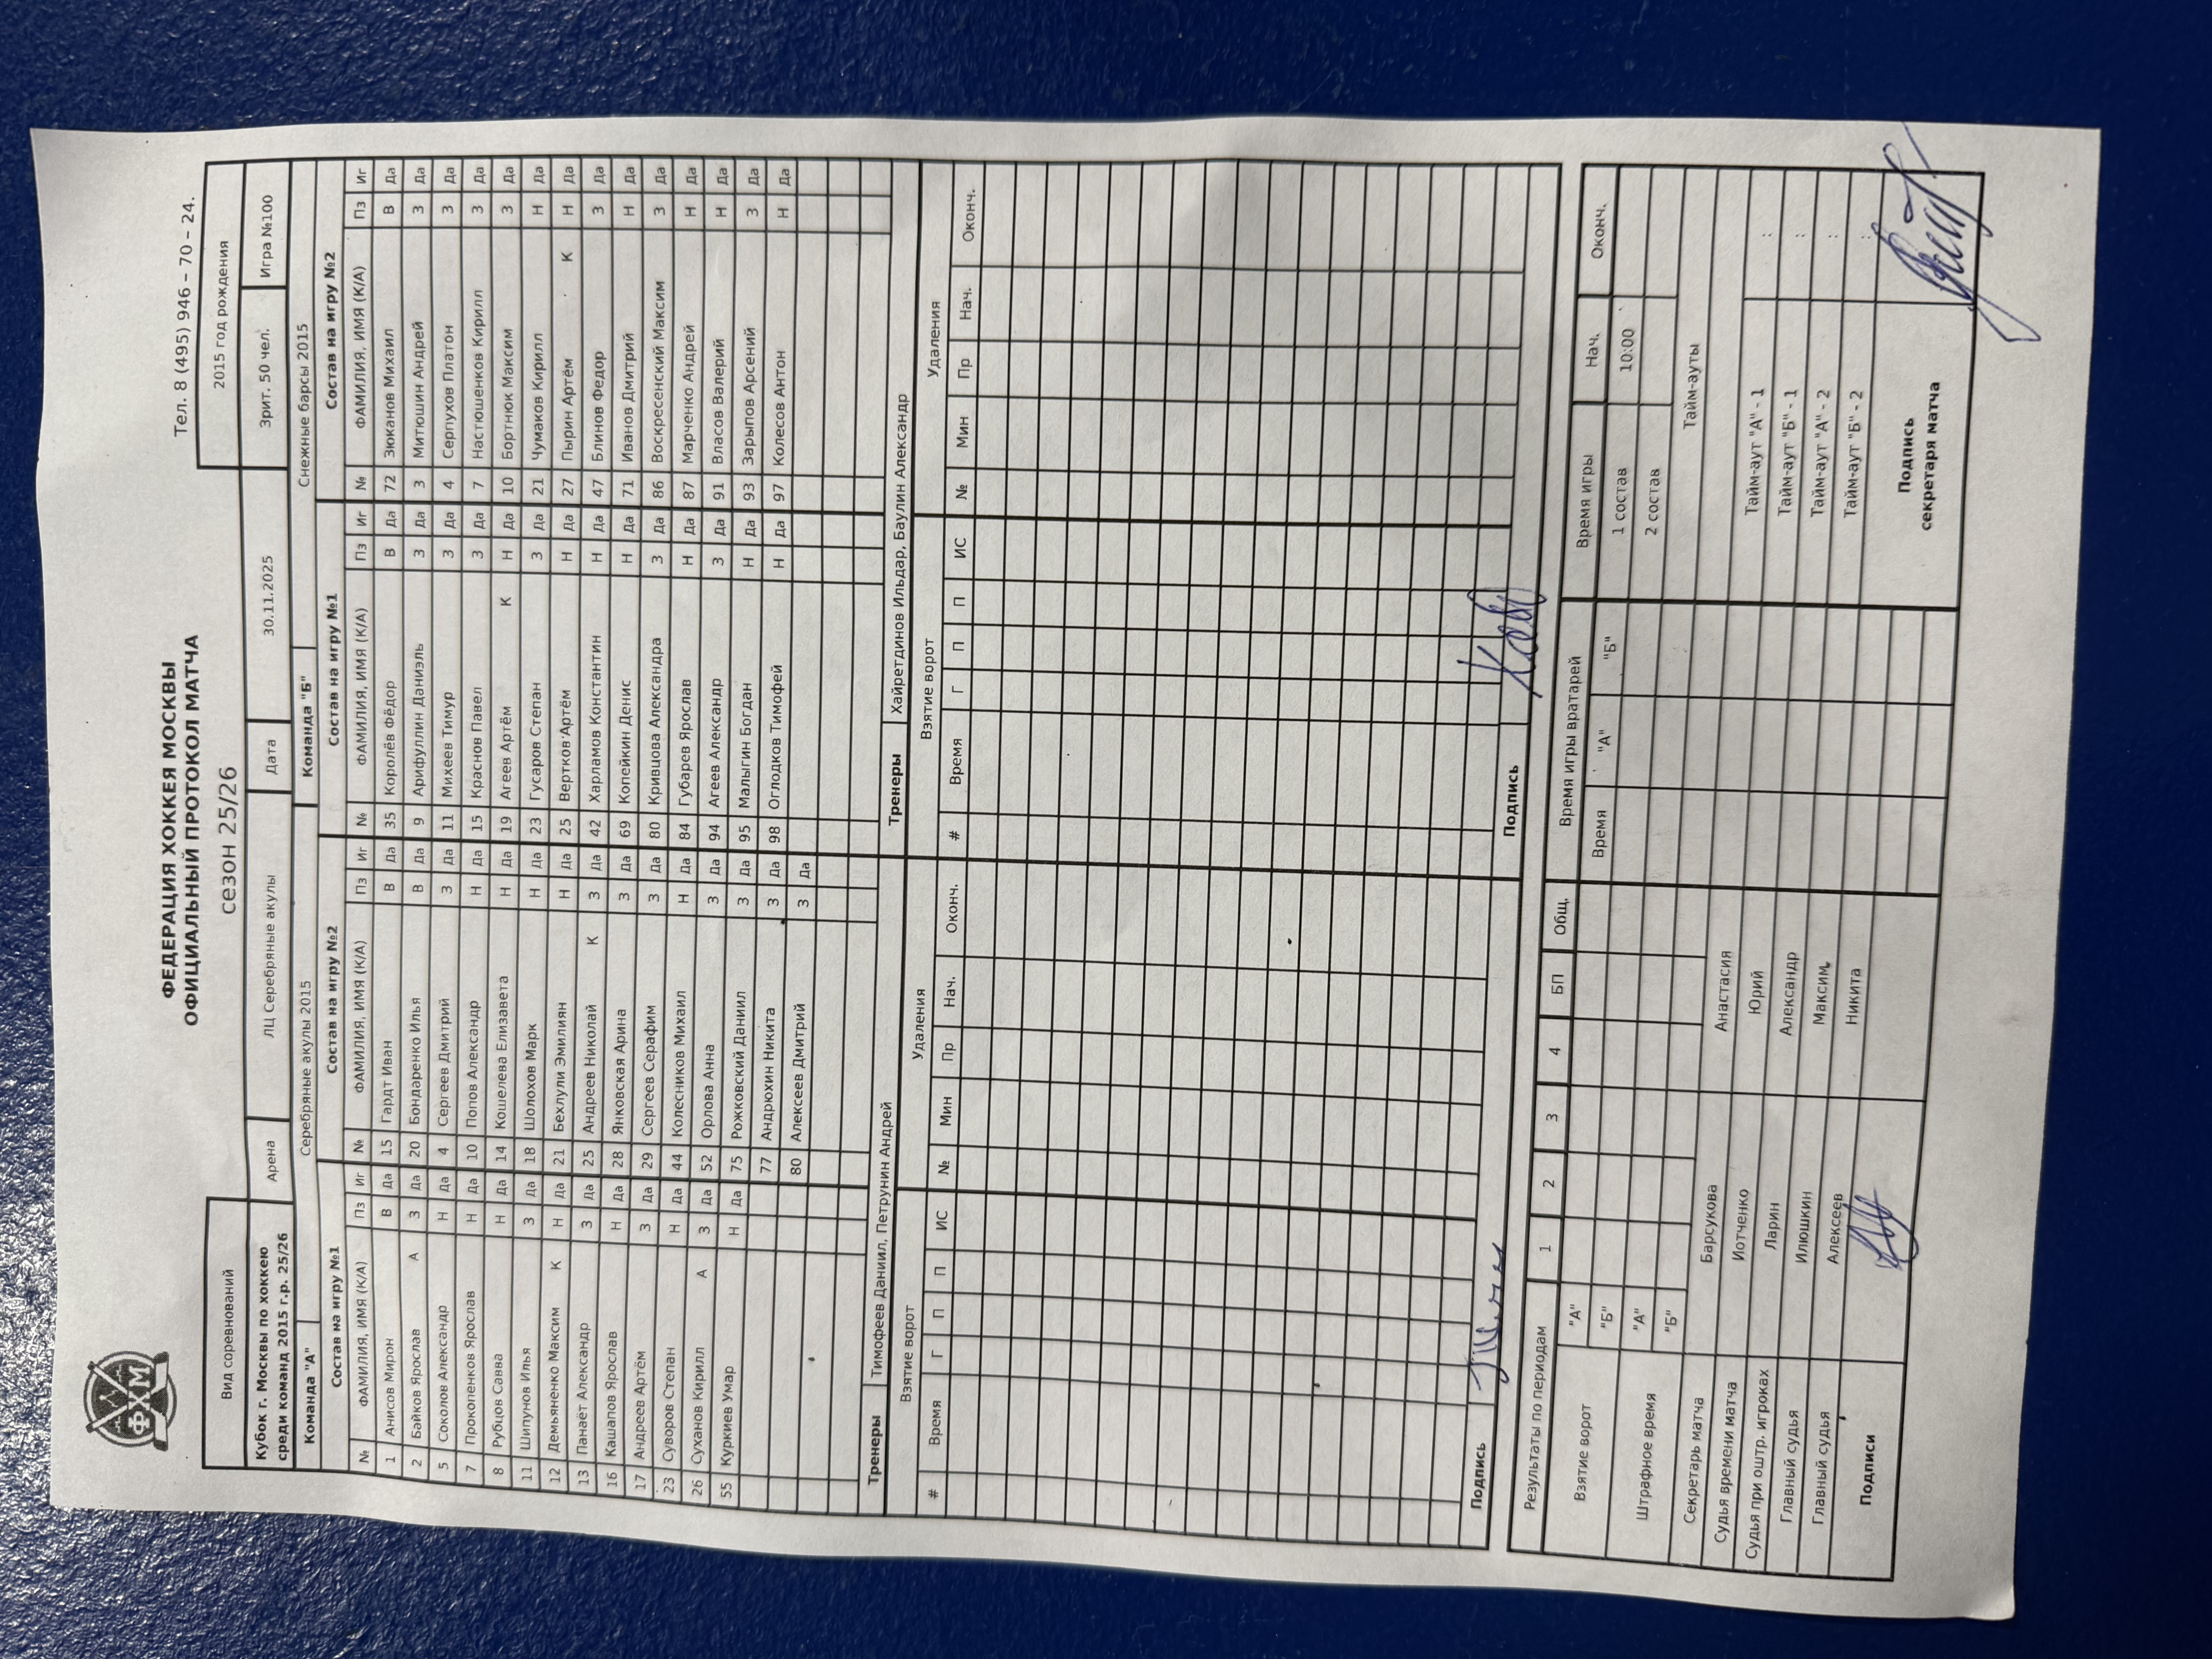 ФХМ
ФЕДЕРАЦИЯ ХОККЕЯ МОСКВЫ
ОФИЦИАЛЬНЫЙ ПРОТОКОЛ МАТЧА
Тел. 8 (495) 946 – 70 – 24.
сезон 25/26
Вид соревнований
2015 год рождения
Кубок г. Москвы по хоккею среди команд 2015 г.р. 25/26
Арена ЛЦ Серебряные акулы Дата 30.11.2025 Зрит. 50 чел. Игра №100
Команда "А" Серебряные акулы 2015 Команда "Б" Снежные барсы 2015
Состав на игру №1 Состав на игру №2 Состав на игру №1 Состав на игру №2
№ ФАМИЛИЯ, ИМЯ (К/А) Пз Иг № ФАМИЛИЯ, ИМЯ (К/А) Пз Иг № ФАМИЛИЯ, ИМЯ (К/А) Пз Иг № ФАМИЛИЯ, ИМЯ (К/А) Пз Иг
1 Анисов Мирон В Да 15 Гардт Иван В Да 35 Королёв Фёдор В Да 72 Зюканов Михаил В Да
2 Байков Ярослав А З Да 20 Бондаренко Илья В Да 9 Арифуллин Даниэль З Да 3 Митюшин Андрей З Да
5 Соколов Александр Н Да 4 Сергеев Дмитрий З Да 11 Михеев Тимур З Да 4 Серпухов Платон З Да
7 Прокопенков Ярослав Н Да 10 Попов Александр Н Да 15 Краснов Павел З Да 7 Настюшенков Кирилл З Да
8 Рубцов Савва Н Да 14 Кошелева Елизавета Н Да 19 Агеев Артём К Н Да 10 Бортнюк Максим З Да
11 Шипунов Илья З Да 18 Шолохов Марк Н Да 23 Гусаров Степан З Да 21 Чумаков Кирилл Н Да
12 Демьяненко Максим К Н Да 21 Бехлули Эмилиян Н Да 25 Вертков Артём Н Да 27 Пырин Артём К Н Да
13 Панаёт Александр З Да 25 Андреев Николай К З Да 42 Харламов Константин Н Да 47 Блинов Федор З Да
16 Кашапов Ярослав Н Да 28 Янковская Арина З Да 69 Копейкин Денис Н Да 71 Иванов Дмитрий Н Да
17 Андреев Артём З Да 29 Сергеев Серафим З Да 80 Кривцова Александра З Да 86 Воскресенский Максим З Да
23 Суворов Степан Н Да 44 Колесников Михаил Н Да 84 Губарев Ярослав Н Да 87 Марченко Андрей Н Да
26 Суханов Кирилл А З Да 52 Орлова Анна З Да 94 Агеев Александр З Да 91 Власов Валерий Н Да
55 Куркиев Умар Н Да 75 Рожковский Даниил З Да 95 Малыгин Богдан Н Да 93 Зарыпов Арсений З Да
77 Андрюхин Никита З Да 98 Оглодков Тимофей Н Да 97 Колесов Антон Н Да
80 Алексеев Дмитрий З Да
Тренеры Тимофеев Даниил, Петрунин Андрей Тренеры Хайретдинов Ильдар, Баулин Александр
Взятие ворот Удаления Взятие ворот Удаления
# Время Г П П ИС № Мин Пр Нач. Оконч. # Время Г П П ИС № Мин Пр Нач. Оконч.
Подпись Подпись
Результаты по периодам 1 2 3 4 БП Общ. Время игры вратарей Время игры Нач. Оконч.
Взятие ворот "А" Время "А" "Б" 1 состав 10:00
"Б" 2 состав
Штрафное время "А" Тайм-ауты
"Б"
Секретарь матча Барсукова Анастасия Тайм-аут "А" - 1 :
Судья времени матча Иотченко Юрий Тайм-аут "Б" - 1 :
Судья при оштр. игроках Ларин Александр Тайм-аут "А" - 2 :
Главный судья Илюшкин Максим Тайм-аут "Б" - 2 :
Главный судья Алексеев Никита
Подписи
Подпись секретаря матча